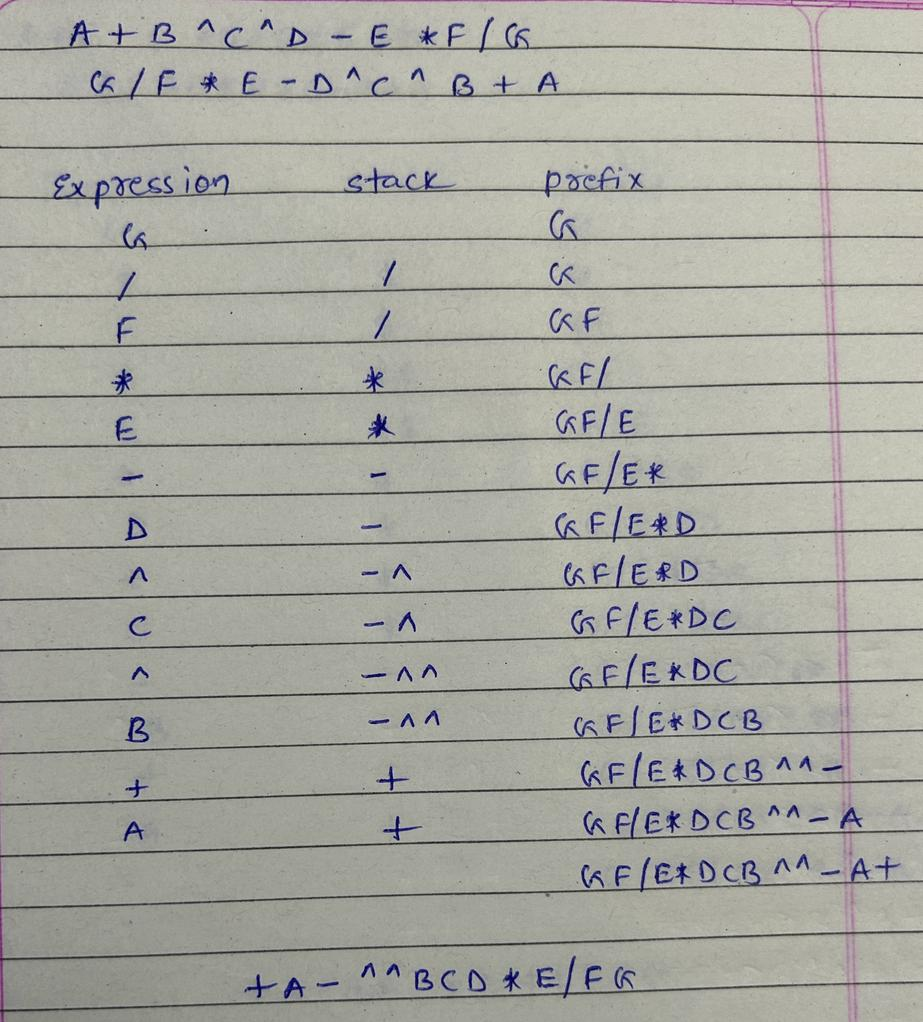 A + B ^ C ^ D - E * F / G
G / F * E - D ^ C ^ B + A
Expression stack prefix
G G
/ / G
F / GF
* * GF/
E * GF/E
- - GF/E*
D - GF/E*D
^ -^ GF/E*D
C -^ GF/E*DC
^ -^^ GF/E*DC
B -^^ GF/E*DCB
+ + GF/E*DCB^^-
A + GF/E*DCB^^-A
GF/E*DCB^^-A+
+A-^^BCD*E/FG